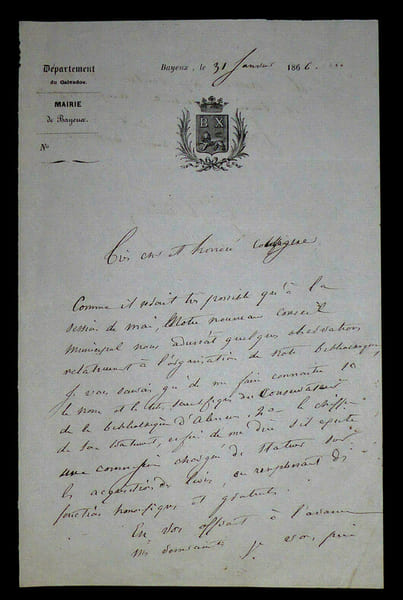 Département
du Calvados.
MAIRIE
de Bayeux.
N°
Bayeux, le 31 Janvier 1866.
B X
Très cher et honoré collègue
Comme il serait très possible qu'à la
session de mai, Notre nouveau Conseil
municipal nous adressât quelques observations
relativement à l'organisation de notre bibliothèque,
je vous saurais gré de me faire connaître
le nom et le titre scientifique du Conservateur
de la bibliothèque d'Alençon, le chiffre
de son traitement, enfin de me dire s'il existe
une commission chargée de statuer sur
les acquisitions de livres, en remplissant des
fonctions honorifiques et gratuites.
En vous offrant à l'avance
mes je vous prie